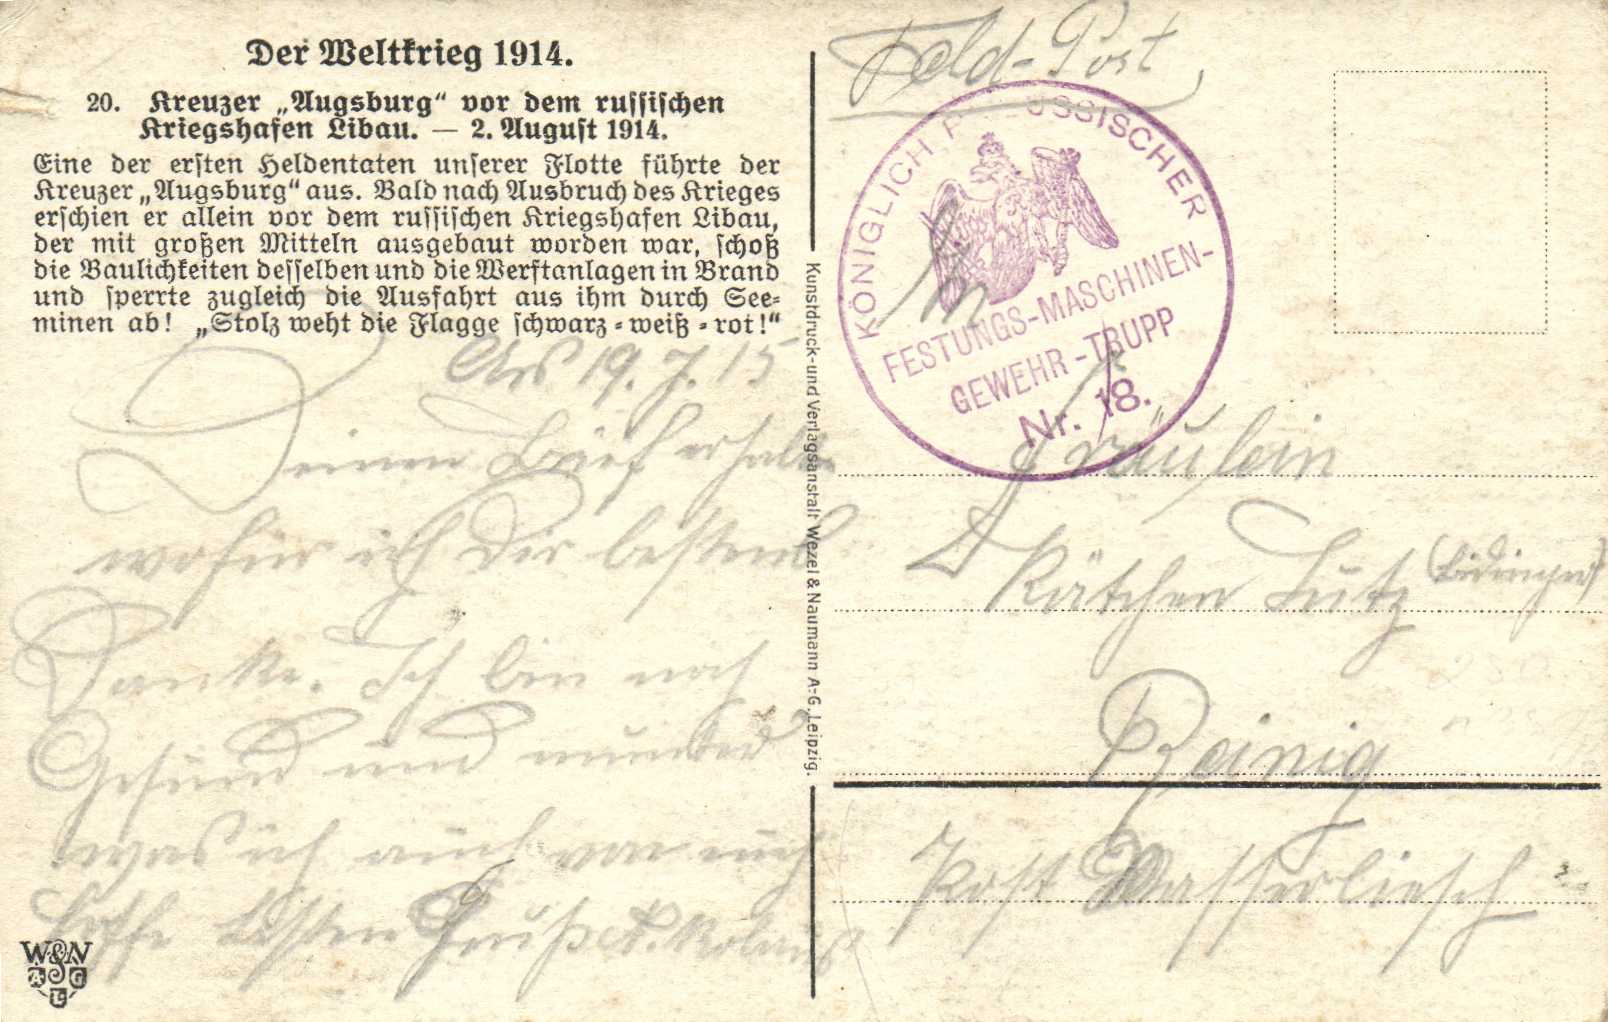 Der Weltkrieg 1914.
20. Kreuzer „Augsburg“ vor dem russischen
Kriegshafen Libau. — 2. August 1914.
Eine der ersten Heldentaten unserer Flotte führte der
Kreuzer „Augsburg“ aus. Bald nach Ausbruch des Krieges
erschien er allein vor dem russischen Kriegshafen Libau,
der mit großen Mitteln ausgebaut worden war, schoß
die Baulichkeiten desselben und die Werftanlagen in Brand
und sperrte zugleich die Ausfahrt aus ihm durch See-
minen ab! „Stolz weht die Flagge schwarz-weiß-rot!“
19. 7. 15
Deinen Brief erhalten
wofür ich Dir bestens
Danke. Ich bin noch
Gesund und munter
was ich auch von euch
hoffe besten Gruß
W&N
A G
L
Kunstdruck- und Verlagsanstalt Wezel & Naumann A.-G., Leipzig.
Feld-Post
KÖNIGLICH PREUSSISCHER
FESTUNGS-MASCHINEN-
GEWEHR-TRUPP
Nr. 18.
An
Fräulein
Kätchen Lutz
Reinig
Post Wasserliesch